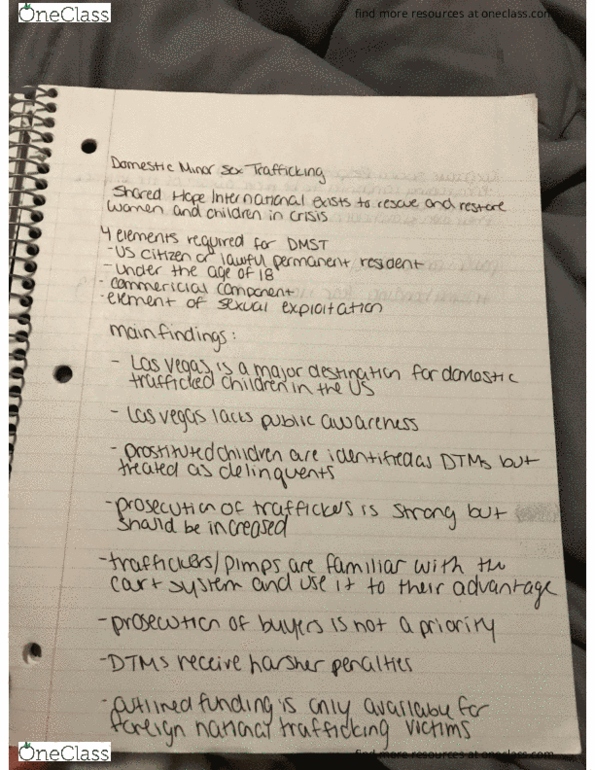 OneClass
find more resources at oneclass.com
Domestic Minor Sex Trafficking
Shared Hope International exists to rescue and restore
women and children in crisis
4 elements required for DMST
-US citizen or lawful permanent resident
-under the age of 18
- commericial component
-element of sexual exploitation
main findings:
- Las Vegas is a major destination for domestic
trafficked children in the US
- Las Vegas lacts public awareness
- prostituted children are identified as DTMs but
treated as delinquents
-prosecution of traffickers is strong but
should be increased
-traffickers/pimps are familiar with the
cart system and use it to their advantage
-prosecution of buyers is not a priority
-DTMs receive harsher penalties
- outlined funding is only availaby for
foreign national trafficking victims
OneClass
find more resources at oneclass.com